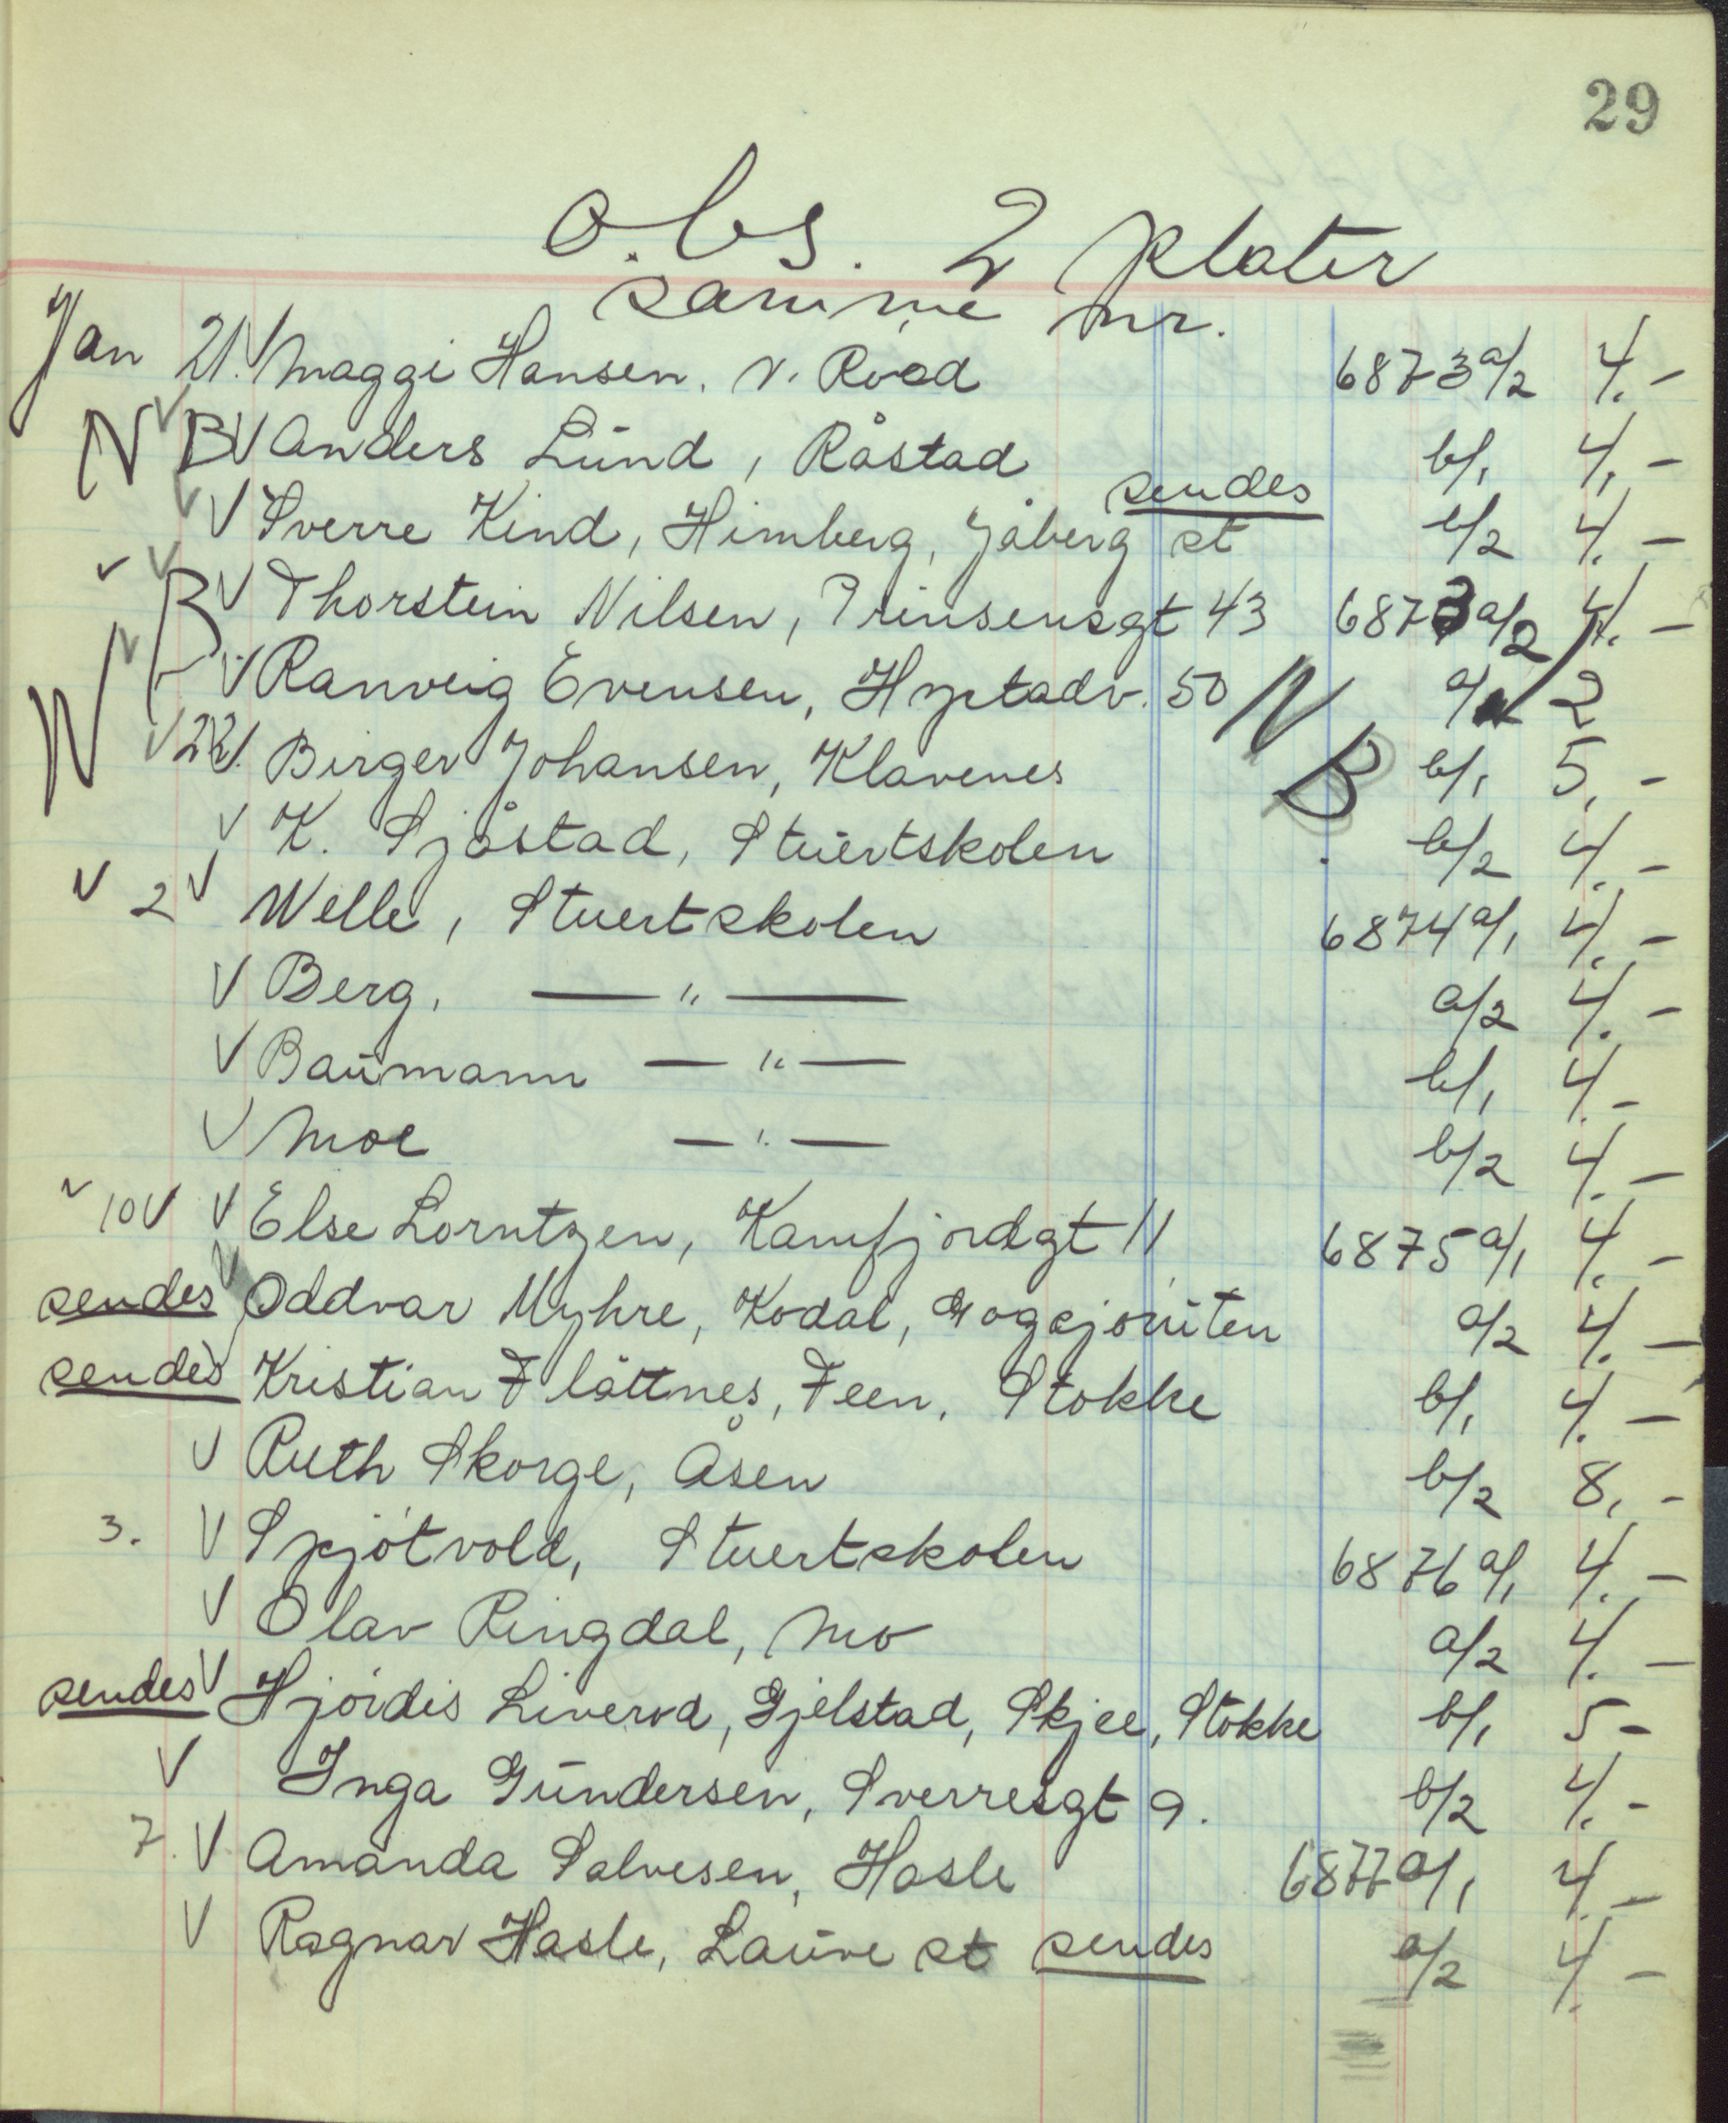 29
O.bs. 2 plater
samme nr.
Jan 21. V Maggi Hansen. v. Roed 6873 a/2 4.-
NB V Anders Lund, Råstad b/1 4,-
V Sverre Kind, Himberg, Jåberg st sendes b/2 4.-
V Thorstein Nilsen, Prinsensgt 43 6873 a/2 4.-
NB V Ranveig Evensen, Hystadv. 50 NB a/ 2
V 22 V. Birger Johansen, Klavenes b/1 5,-
V K. Sjåstad, Stuertskolen b/2 4.-
V 2 V Welle, Stuertskolen 6874 a/1 4.-
V Berg. — " — a/2 4.-
V Baumann — " — b/1 4.-
V Moe — " — b/2 4.-
V 10 V V Else Lorntzen, Kamfjordgt 11 6875 a/1 4.-
sendes V Oddvar Myhre, Kodal, Gogsjøruten a/2 4.-
sendes V Kristian Flåttnes, Feen, Stokke b/1 4.-
V Ruth Skorge, Åsen b/2 8,-
3. V Spjøtvold, Stuertskolen 6876 a/1 4.-
V Olav Ringdal, Mo a/2 4.-
sendes V Hjørdis Liverød, Gjelstad, Skjee, Stokke b/1 5-
V Inga Gundersen, Sverresgt 9. b/2 4.-
7. V Amanda Salvesen, Hasle 6877 a/1 4.-
V Ragnar Hasle, Lauve st sendes a/2 4.-